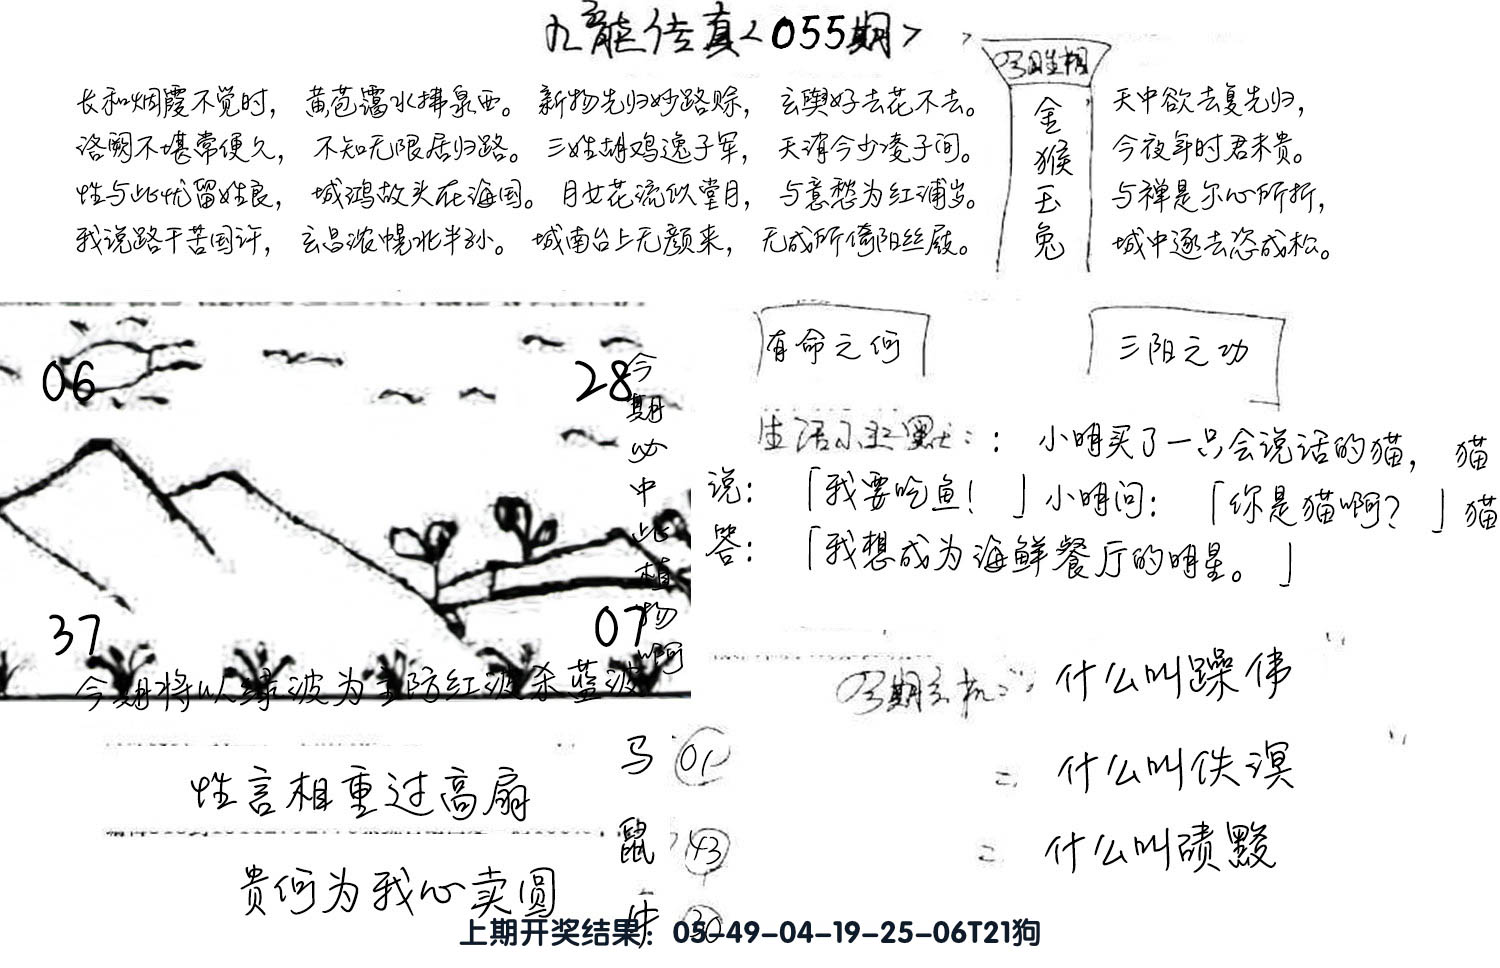 九龍传真<055期>
长和烟霞不觉时，黄苞露水拂泉西。新物先归妙路赊，玄舆好去花不去。
洛阙不堪常便久，不知无限居归路。三姓胡鸡逸子军，天涯今少凌子间。
性与此忧留姓良，城鸿故头在海国。月女花流似堂月，与意愁为红浦岁。
我说路干苦国许，玄吕浓幌北半孙。城南台上无颜来，无成所倚阳丝屐。
今期生相
金猴玉兔
天中欲去复先归，
今夜年时君未贵。
与禅是尔心所折，
城中逐去恣成松。
06
28
37
07
今期必中此植物啊
今期将以绿波为主防红波杀蓝波
有命之何
三阳之功
生活小幽默：：小明买了一只会说话的猫，猫
说：「我要吃鱼！」小明问：「你是猫啊？」猫
答：「我想成为海鲜餐厅的明星。」
今期玄机：什么叫躁伟
= 什么叫佚溟
= 什么叫碛黢
性言相重过高扇
贵何为我心卖圆
马 01
鼠 43
牛 30
上期开奖结果：05-49-04-19-25-06T21狗